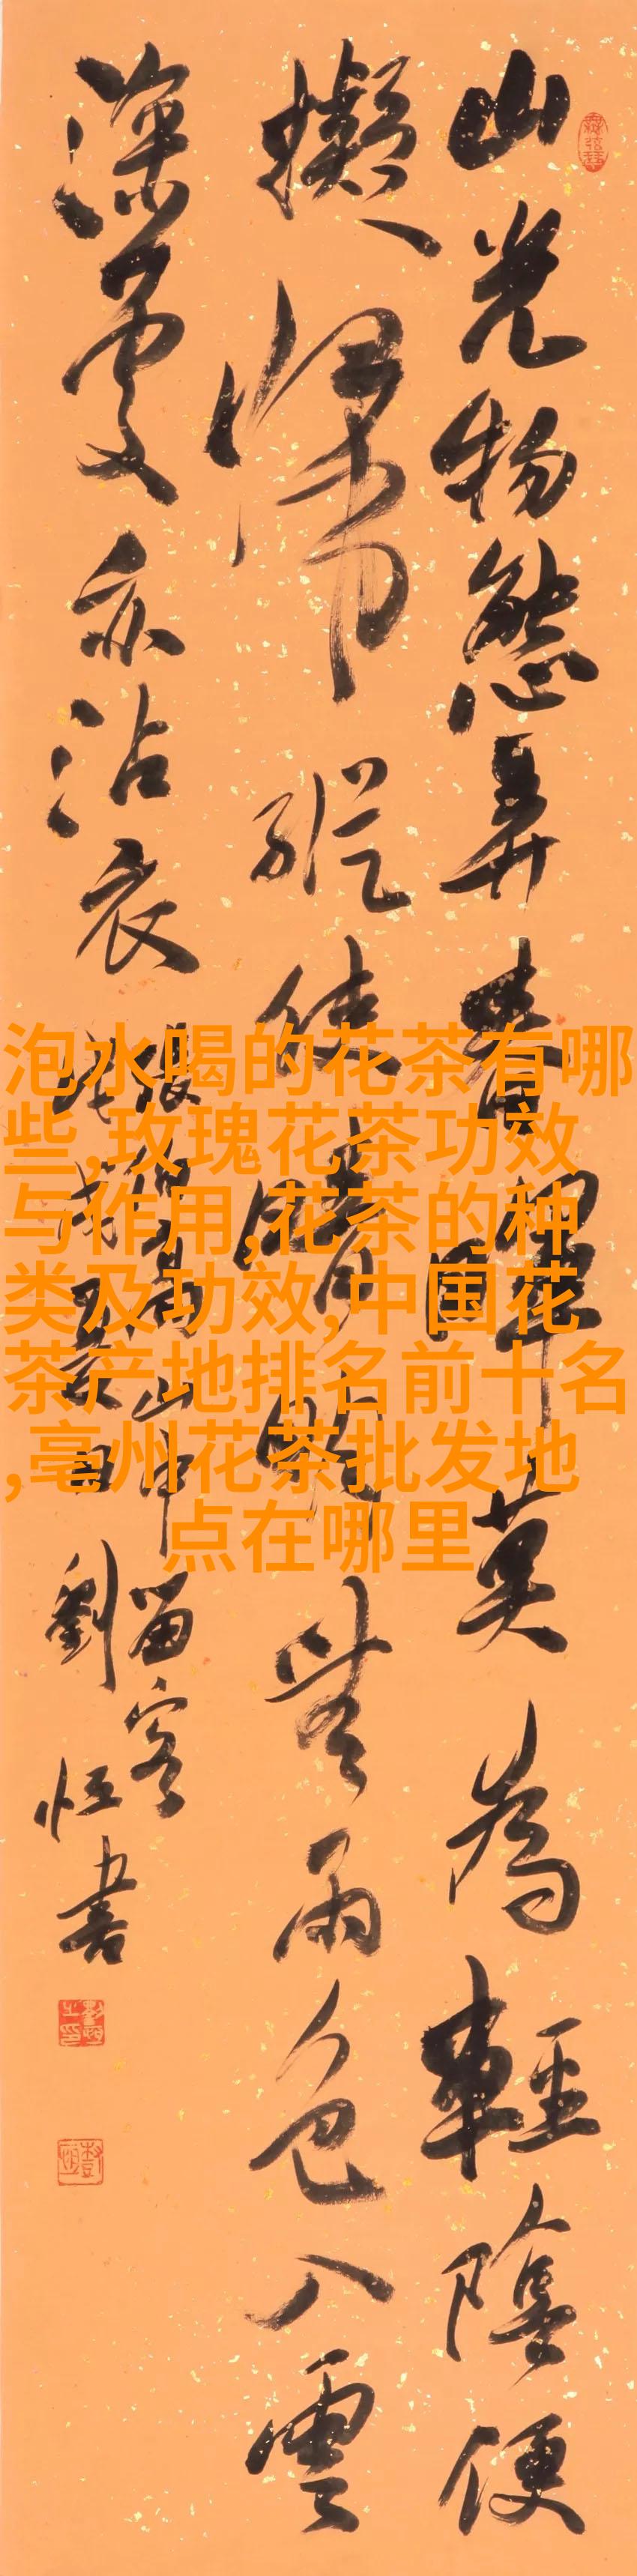 山光物態弄春暉莫為輕陰便
擬歸縱使晴明無雨色入雲
深處亦沾衣
張伯高山中留客
戌夏日劉恒書
泡水喝的花茶有哪
些,玫瑰花茶功效
与作用,花茶的种
类及功效,中国花
茶产地排名前十名
,亳州花茶批发地
点在哪里